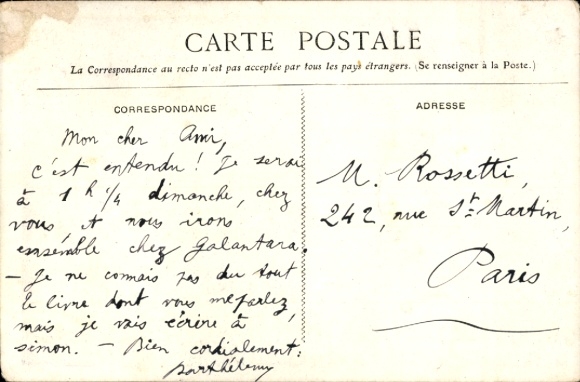 CARTE POSTALE
La Correspondance au recto n'est pas acceptée par tous les pays étrangers. (Se renseigner à la Poste.)
CORRESPONDANCE
Mon cher Ami,
C'est entendu ! Je serai
à 1 h 1/4 dimanche, chez
vous, et nous irons
ensemble chez Galantara.
— Je ne connais pas du tout
le livre dont vous me parlez,
mais je vais écrire à
simon. — Bien cordialement:
Barthélemy
ADRESSE
M. Rossetti,
242, rue St-Martin,
Paris